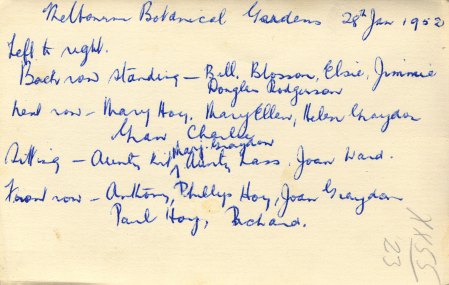 Melbourne Botanical Gardens 28th Jan 1952
Left to right.
Back row standing - Bill, Blosson, Elsie, Jimmie
Douglas Rodgerson
Next row - Mary Hoy, Mary Ellen, Helen Graydon
Charley
Sitting - Aunty Kit, Mary Graydon Aunty Lass. Joan Ward.
Front row - Anthony, Phillys Hoy, Joan Graydon
Paul Hoy, Richard.
23